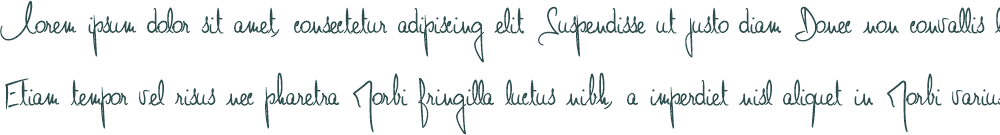 Lorem ipsum dolor sit amet, consectetur adipiscing elit Suspendisse ut justo diam Donec non convallis
Etiam tempor vel risus nec pharetra Morbi fringilla luctus nibh, a imperdiet nisl aliquet in Morbi varius